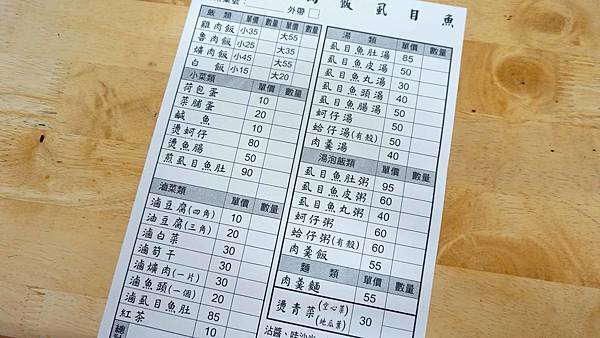 外帶□
飯 虱目魚
飯 類 單價 數量 單價 數量
雞肉飯 小35 大55
魯肉飯 小25 大35
爌肉飯 小45 大55
白 飯 小15 大20
小菜類 單價 數量
荷包蛋 10
菜脯蛋 20
鹹 魚 10
燙蚵仔 80
燙魚腸 50
煎虱目魚肚 90
滷菜類 單價 數量
滷豆腐(四角) 10
油豆腐(三角) 20
滷白菜 30
滷筍干 30
滷爌肉(一片) 30
滷魚頭(一個) 20
滷虱目魚肚 85
紅茶 10
湯 類 單價 數量
虱目魚肚湯 85
虱目魚皮湯 50
虱目魚丸湯 30
虱目魚頭湯 40
虱目魚腸湯 50
蚵仔湯 50
蛤仔湯(有殼) 50
肉羹湯 40
湯泡飯類 單價 數量
虱目魚肚粥 95
虱目魚皮粥 60
虱目魚丸粥 40
蚵仔粥 60
蛤仔粥(有殼) 60
肉羹飯 55
麵 類 單價 數量
肉羹麵 55
燙青菜(空心菜)(地瓜葉) 30
沾醬、哇沙米